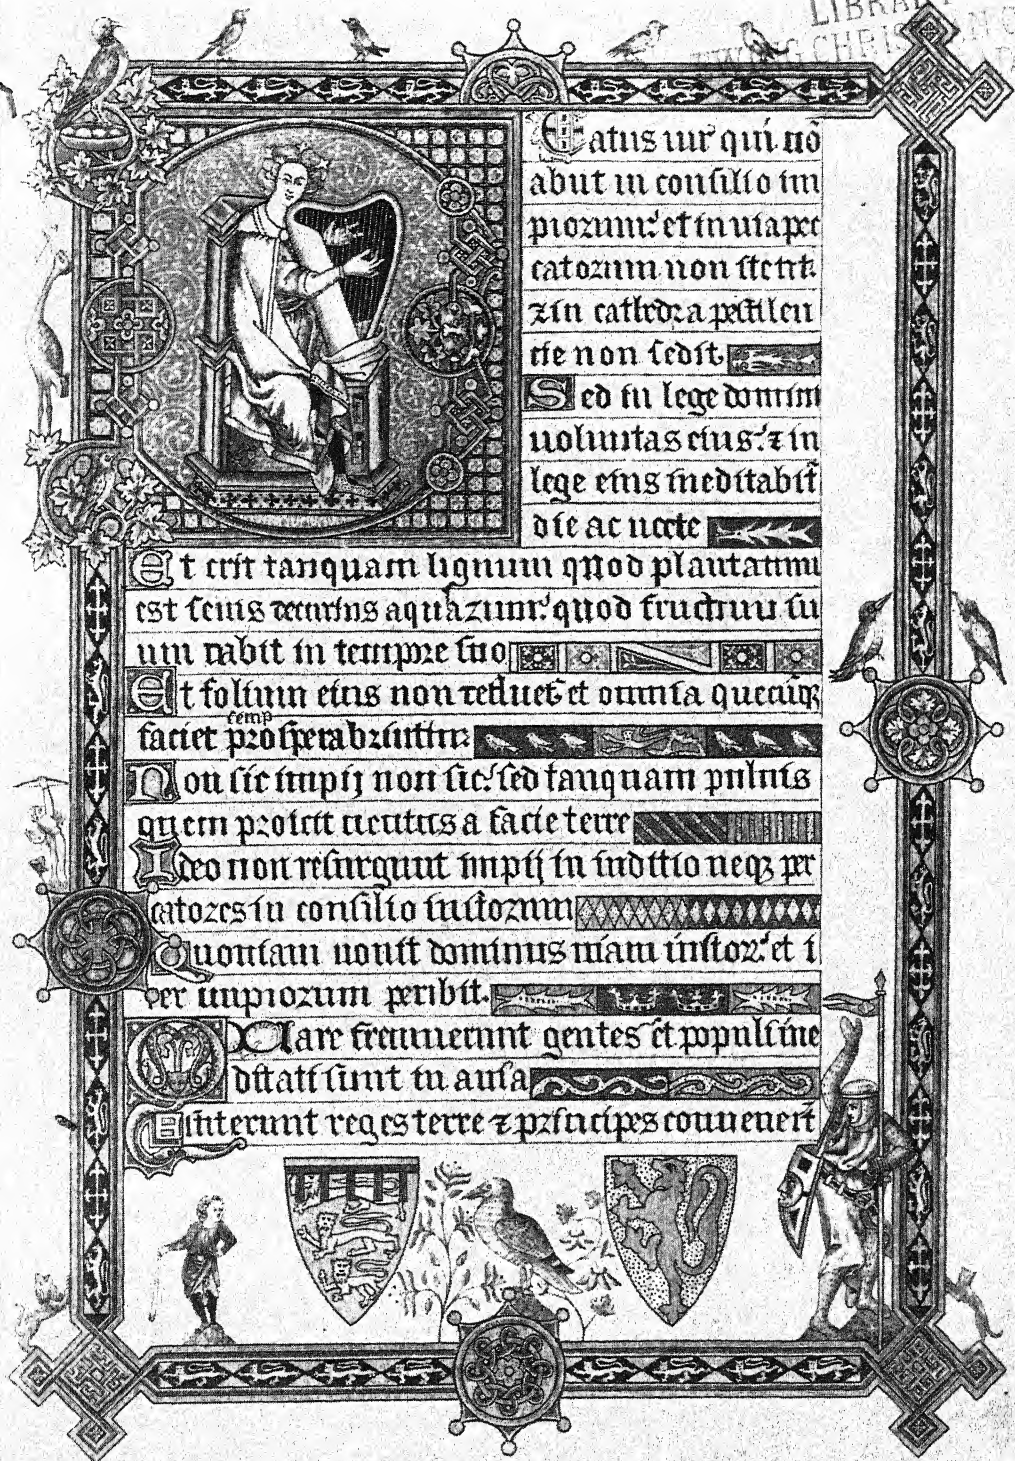 LIBRARY
Eatus uir qui nō
abiit in consilio im
piorum: et in uia pec
catorum non stetit
⁊ in cathedra pestilen
tie non sedit.
Sed in lege domini
uoluntas eius: ⁊ in
lege eius meditabit̄
die ac nocte
Et erit tanquam lignum quod plantatum
est secus decursus aquarum: quod fructum su
um dabit in tempore suo
Et folium eius non defluet: et omnia quecūqꝫ
semp
faciet prosperabuntur
Non sic impij non sic: sed tanquam puluis
quem proicit uentus a facie terre
Ideo non resurgunt impij in iuditio neqꝫ pec
catores in consilio iustorum
Quoniam nouit dominus uiam iustoꝝ: et i
ter impiorum peribit.
Quare fremuerunt gentes et populi sine
ditati sunt in ania
Astiterunt reges terre ⁊ principes conuenerūt